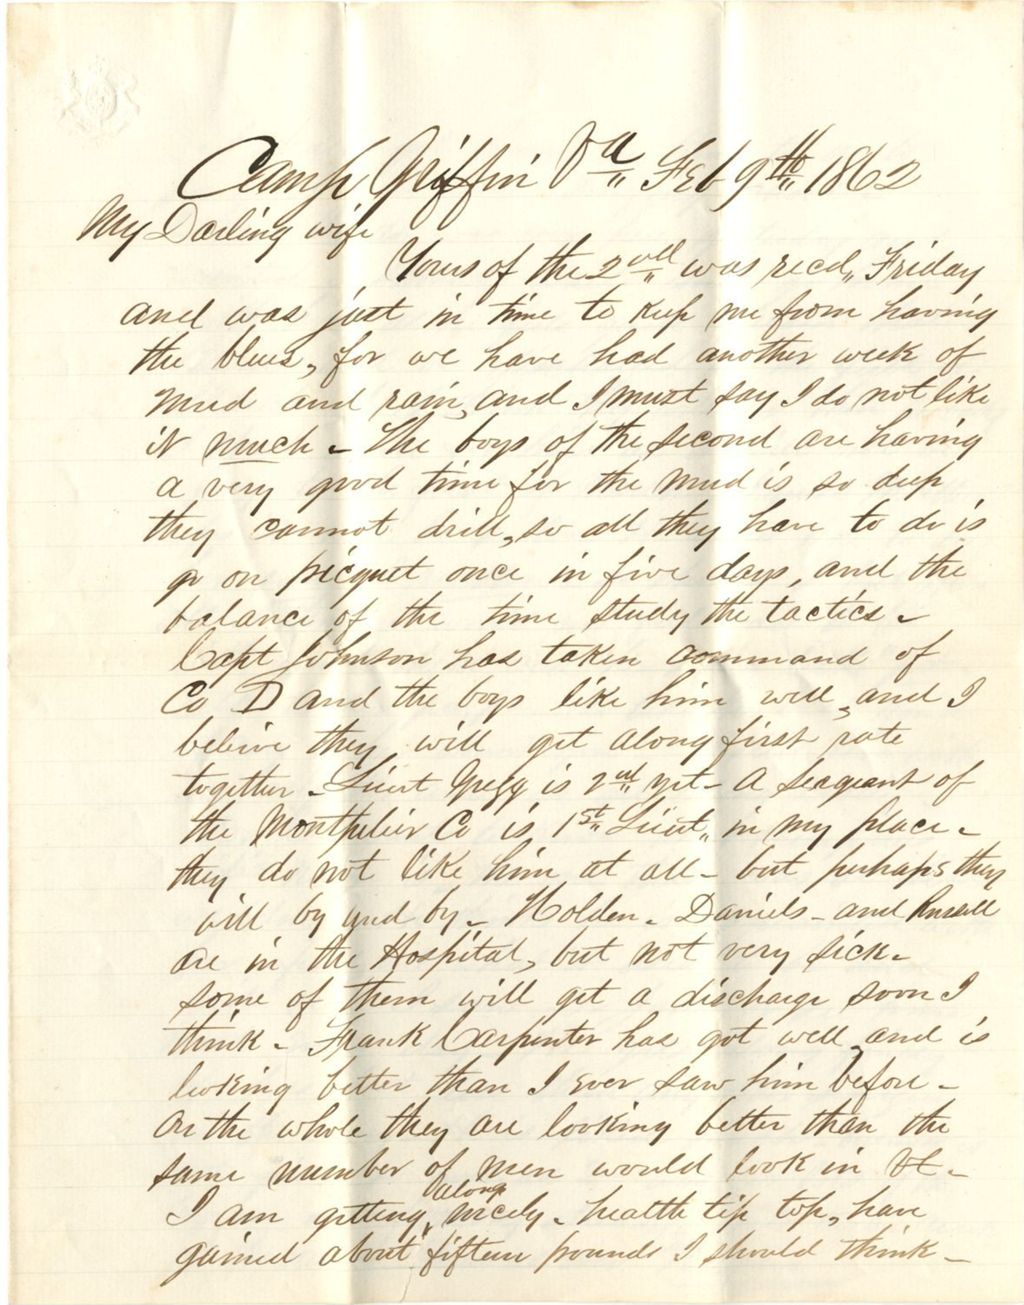 Camp Griffin Va Feb 9th 1862
My Darling wife
Yours of the 2nd was recd, Friday
and was just in time to keep me from having
the blues, for we have had another week of
mud and rain, and I must say I do not like
it much - The boys of the second are having
a very good time for the mud is so deep
they cannot drill, so all they have to do is
go on picquet once in five days, and the
balance of the time study the tactics -
Capt Johnson has taken command of
Co D and the boys like him well, and I
beleive they will get along first rate
together - Lieut Gregg is 2nd yet - A seageant of
the Montpelier Co is 1st Lieut, in my place -
they do not like him at all - but perhaps they
will by and by - Holden - Daniels - and Russell
are in the Hospital, but not very sick -
some of them will get a discharge soon I
think - Frank Carpenter has got well, and is
looking better than I ever saw him before -
On the whole they are looking better than the
same number of men would look in Vt -
I am getting along nicely - health tip top, have
gained about fifteen pounds I should think -